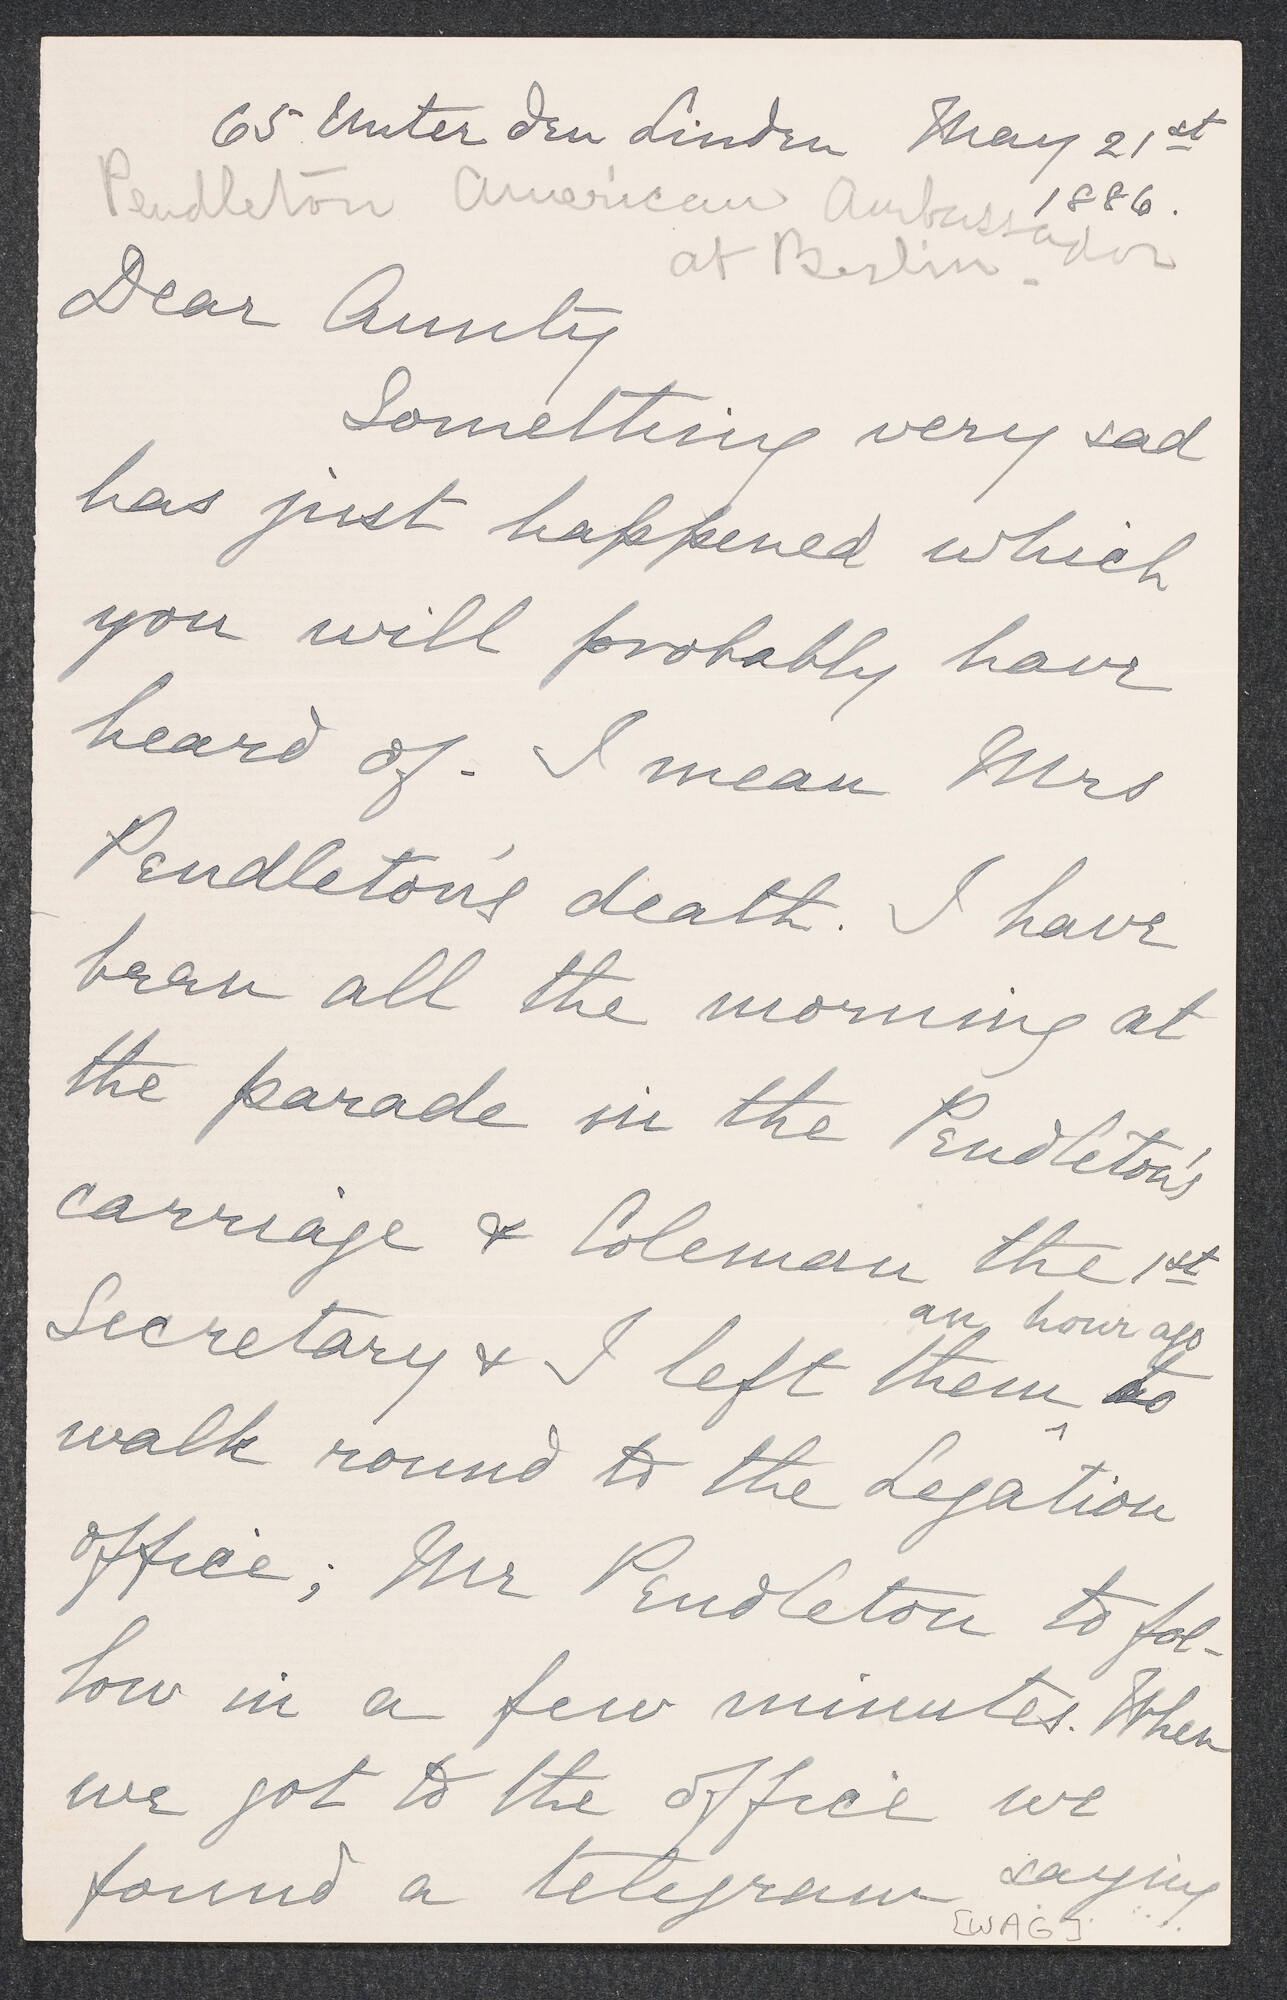 65 Unter den Linden May 21st
1886.
Pendleton American Ambassador
at Berlin.
Dear Aunty
Something very sad
has just happened which
you will probably have
heard of. I mean Mrs
Pendleton's death. I have
been all the morning at
the parade in the Pendleton's
carriage & Coleman the 1st
an hour ago
Secretary & I left them ^ to
walk round to the Legation
office; Mr Pendleton to fol-
low in a few minutes. When
we got to the office we
found a telegram saying
[WAG]